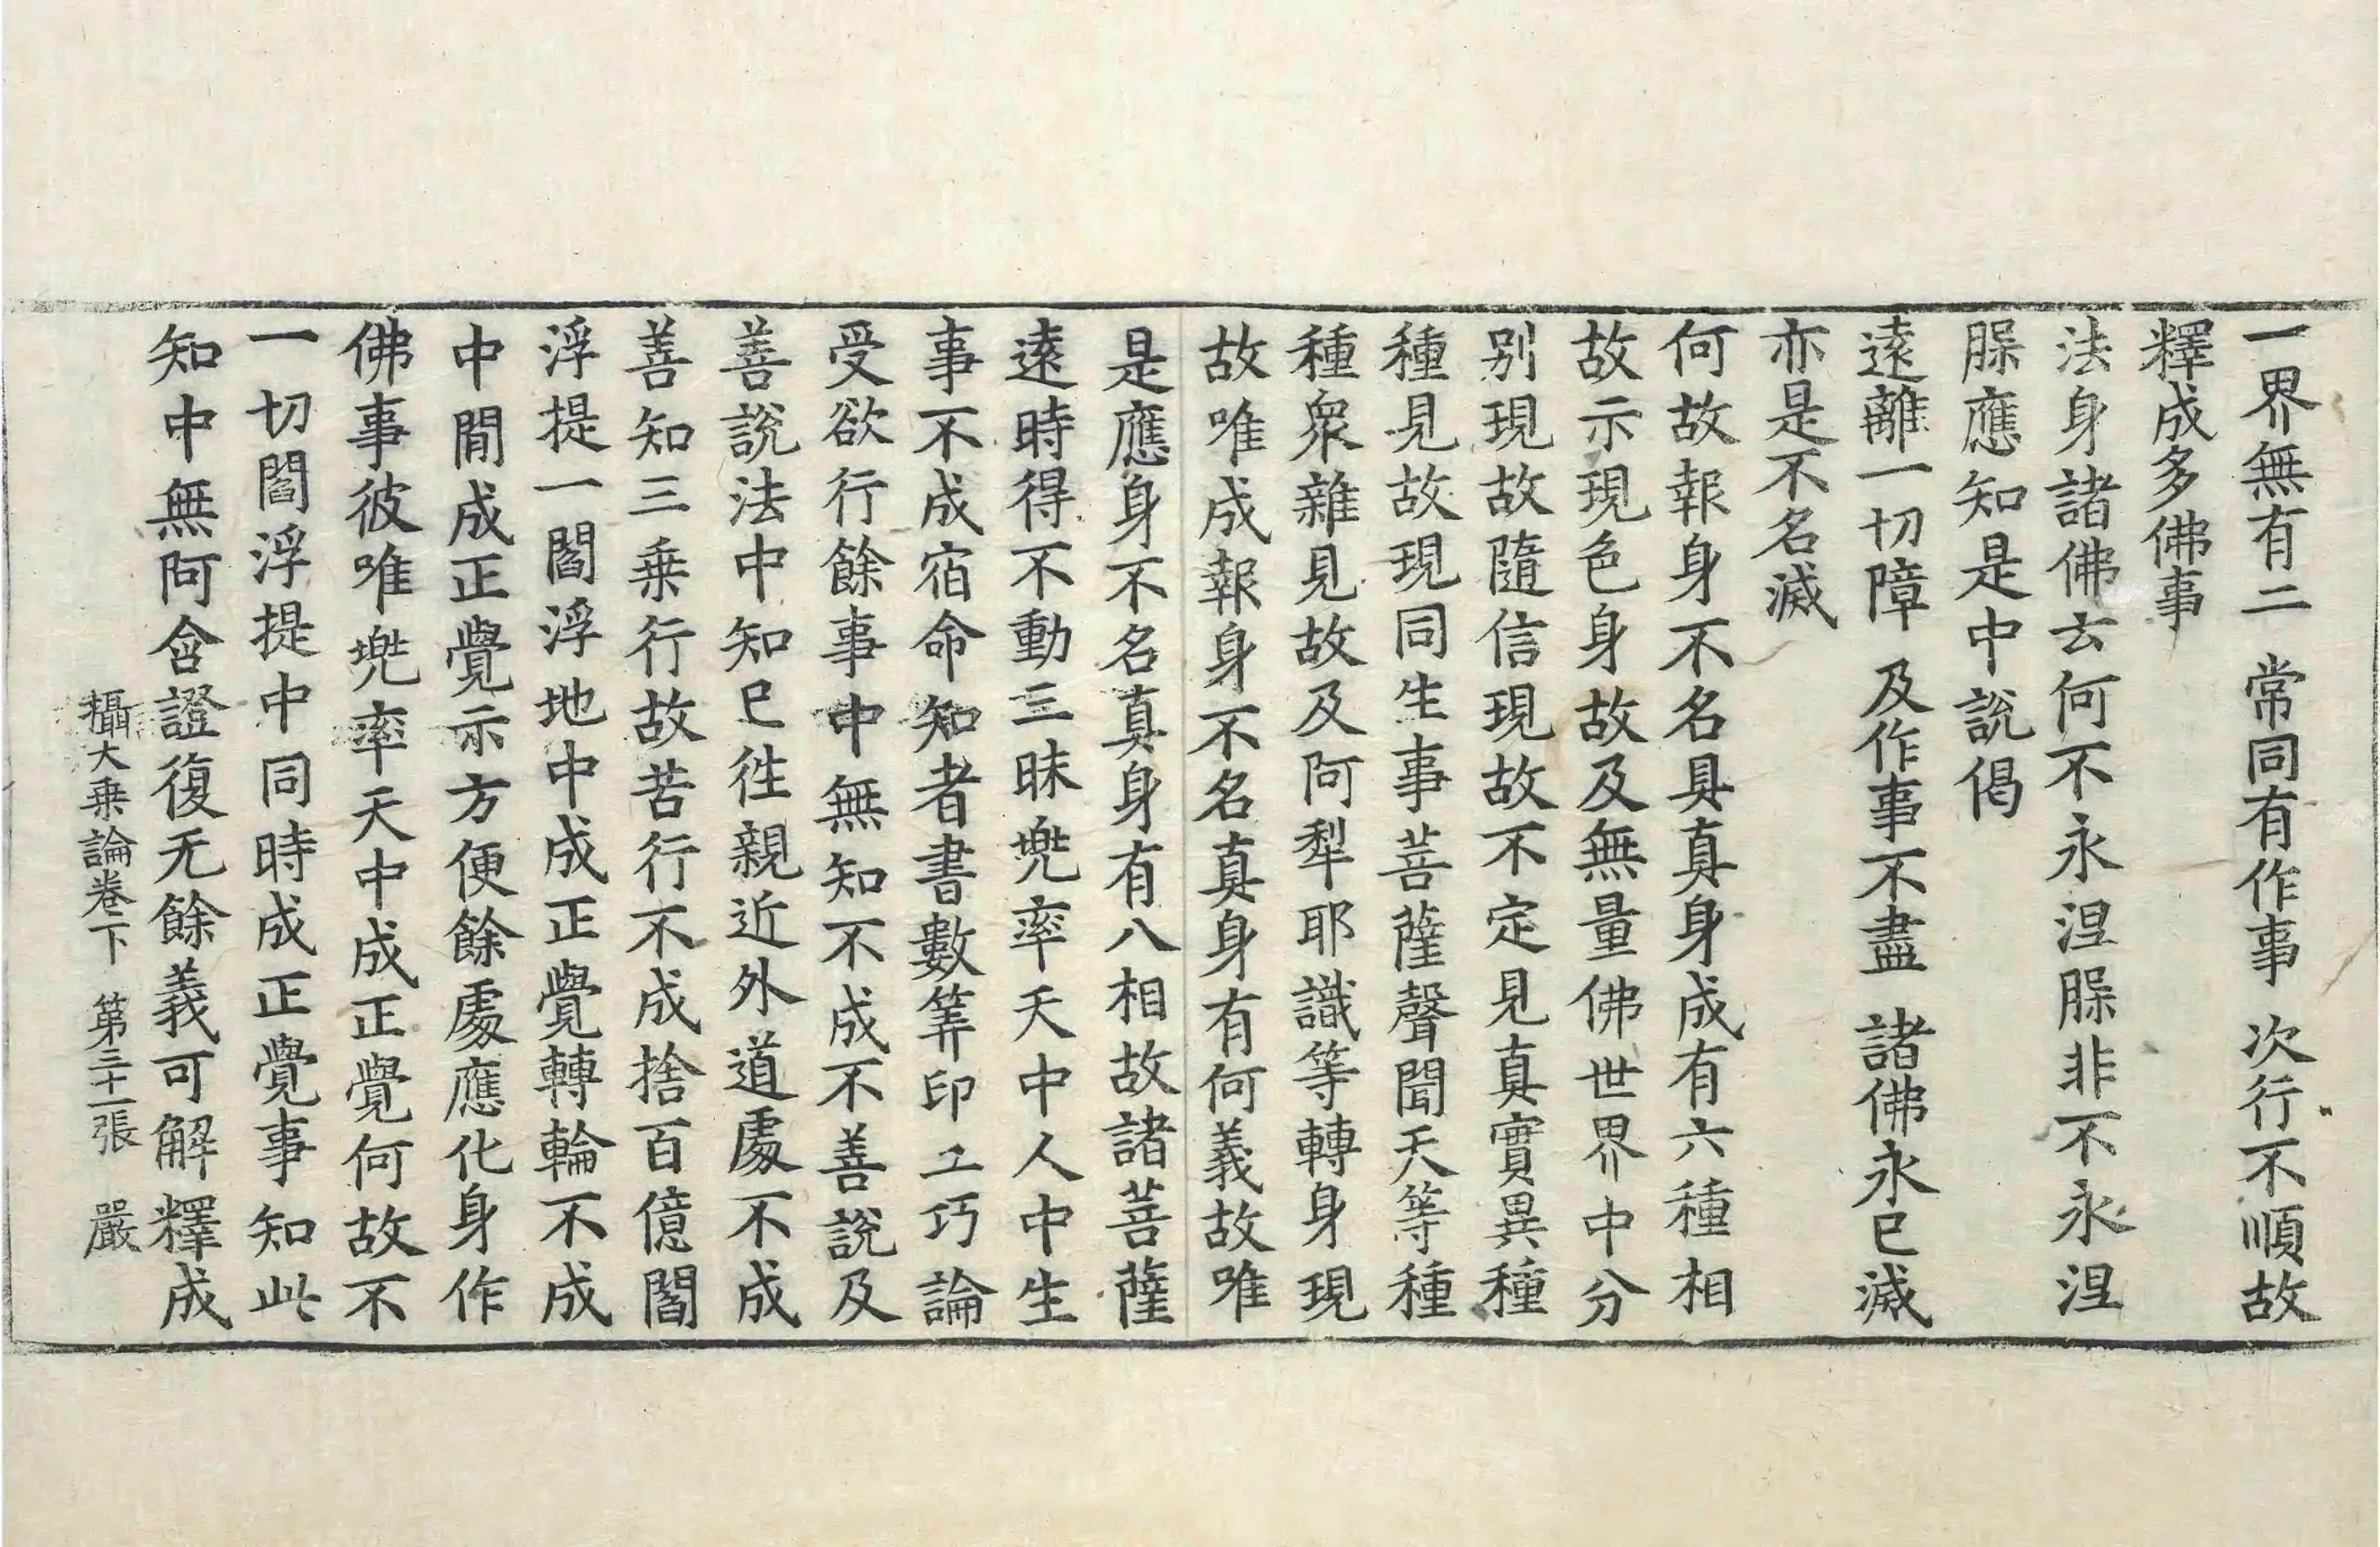 一界無有二　常同有作事　次行不順故
釋成多佛事
法身諸佛云何不永涅脲非不永涅
脲應知是中說偈
遠離一切障　及作事不盡　諸佛永已滅
亦是不名滅
何故報身不名具真身成有六種相
故示現色身故及無量佛世界中分
別現故隨信現故不定見真實異種
種見故現同生事菩薩聲聞天等種
種衆雜見故及阿犁耶識等轉身現
故唯成報身不名真身有何義故唯
是應身不名真身有八相故諸菩薩
遠時得不動三昧兠率天中人中生
事不成宿命知者書數筭印工巧論
受欲行餘事中無知不成不善說及
善說法中知已徃親近外道處不成
善知三乗行故苦行不成捨百億閻
浮提一閻浮地中成正覺轉輪不成
中閒成正覺示方便餘處應化身作
佛事彼唯兠率天中成正覺何故不
一切閻浮提中同時成正覺事知此
知中無阿含證復无餘義可解釋成
攝大乗論卷下　第三十一張　嚴